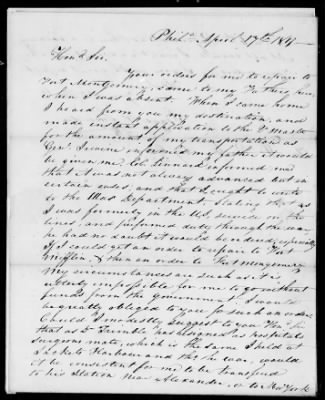 Phila. April 17th 181
Hond. Sir.
Your orders for me to repair to
Fort Montgomery, came to my Fathers,
when I was absent. When I came home
I heard from you my destination, and
made instant application to the Q Master
for the amount of my transportation as
Genl. Irwine informed my father it would
be given me. Col. Linnard informed me
that it was not always advanced but in
certain cases, and that I ought to write
to the War Department, stating that as
I was formerly in the U.S. service on the
lines, and performed duty through the war,
he had no doubt it would be ordered, especially
if I could get an order to repair to Fort
Mifflin, & then an order to Fort Montgomery.
My circumstances are such as it is
utterly impossible for me to go without
funds from the government. I would
be greatly obliged to you for such an order.
Could I modestly suggest to you Hon. Sir
that as Dr. Trimble has resigned as hospital
surgeons mate, which is the same I held at
Sackets Harbour and the war, would
it be consistent for me to be transferred
to his Station near Alexander, or to New York